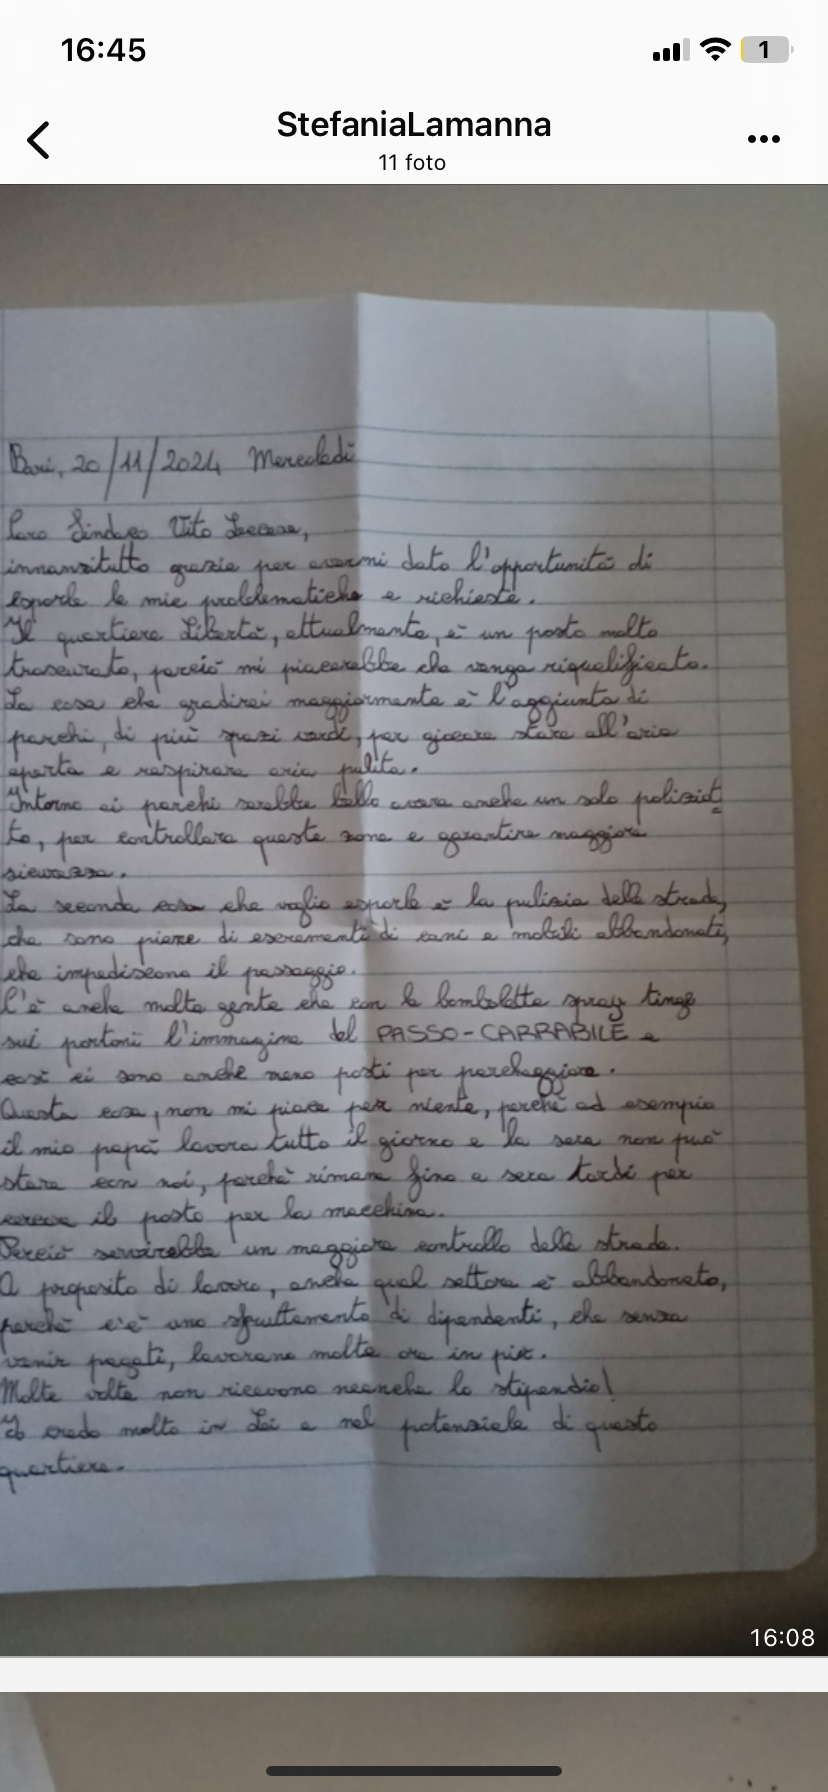 16:45
1
StefaniaLamanna
11 foto
Bari, 20/11/2024 Mercoledì
Caro Sindaco Vito Leccese,
innanzitutto grazie per avermi dato l'opportunità di
esporle le mie problematiche e richieste.
Il quartiere Libertà, attualmente, è un posto molto
trascurato, perciò mi piacerebbe che venga riqualificato.
La cosa che gradirei maggiormente è l'aggiunta di
parchi, di più spazi verdi, per giocare stare all'aria
aperta e respirare aria pulita.
Intorno ai parchi sarebbe bello avere anche un solo poliziot
to, per controllare queste zone e garantire maggiore
sicurezza.
La seconda cosa che voglio esporle è la pulizia delle strade,
che sono piene di escrementi di cani e mobili abbandonati,
che impediscono il passaggio.
C'è anche molta gente che con le bombolette spray tinge
sui portoni l'immagine del PASSO-CARRABILE e
così ci sono anche meno posti per parcheggiare.
Questa cosa, non mi piace per niente, perché ad esempio
il mio papà lavora tutto il giorno e la sera non può
stare con noi, perché rimane fino a sera tardi per
cercare il posto per la macchina.
Perciò servirebbe un maggiore controllo delle strade.
A proposito di lavoro, anche quel settore è abbandonato,
perché c'è uno sfruttamento di dipendenti, che senza
venir pagati, lavorano molte ore in più.
Molte volte non ricevono neanche lo stipendio!
Io credo molto in Lei e nel potenziale di questo
quartiere.
16:08